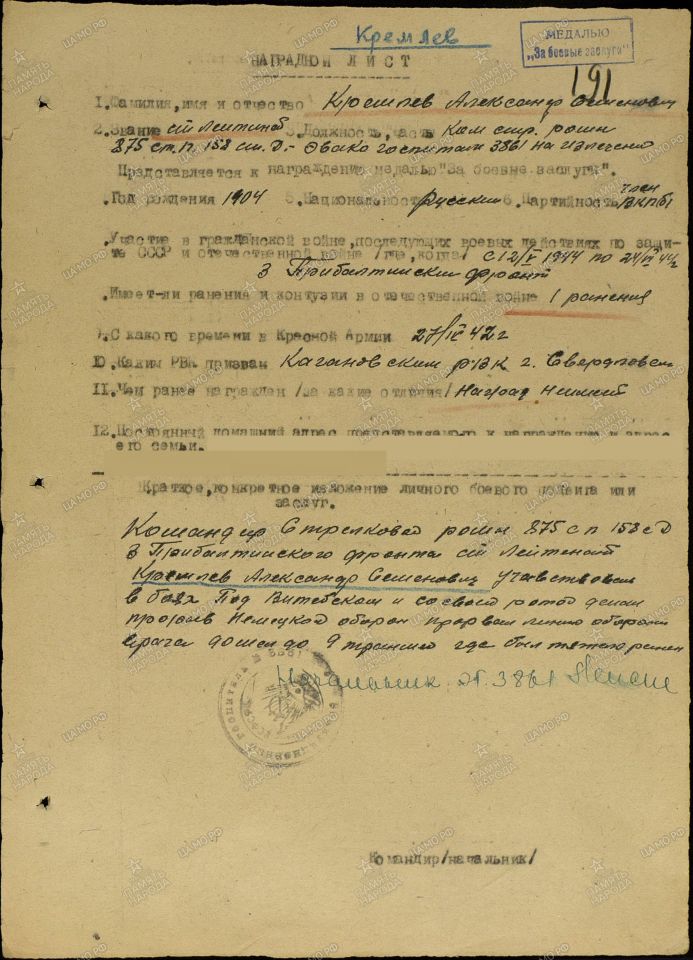 Кремлев
МЕДАЛЬЮ
„За боевые заслуги"
НАГРАДНОЙ ЛИСТ
191
1.Фамилия,имя и отчество Кремлев Александр Семенович
2.Звание ст лейтинат 3.Должность,часть Ком стр. роты
875 ст.п. 158 ст. Д. - Эвако госпиталь 3861 на излечении
Представляется к награждению медалью"За боевые заслуги".
.Год рождения 1904 5.Национальность русский 6.Партийность член ВКПб/
.Участие в гражданской войне,последующих боевых действиях по защи-
те СССР и отечественной войне /где,когда/ с 12/V 1944 по
3 Прибалтийский фронт
.Имеет-ли ранения и контузии в отечественной войне 1 ранения
9.С какого времени в Красной Армии 27/IV 42 г
10.Каким РВК призван Кагановским рвк г. Свердловск
11.Чем ранее награжден /за какие отличия/ Наград неимеит
12.Постоянный домашний адрес представляемого к награждению и адрес
его семьи.
Краткое,конкретное изложение личного боевого подвига или
заслуг.
Командир Стрелковой роты 875 сп 158 сД
3 Прибалтийского фронта ст Лейтенат
Кремлев Александр Семенович учавствовал
в боях Под Витебском и со своей ротой делал
прорыв Немецкой оборон прорвал линию обороны
врага дошел до траншей где был тежело ранен
Начальник ЭГ. 3861
Командир/начальник/
ПАМЯТЬ НАРОДА
ЦАМО.РФ